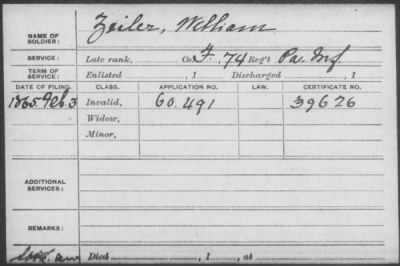 NAME OF SOLDIER: Zeiler, William
SERVICE: Late rank, Co. F. 74 Reg't Pa. Inf
TERM OF SERVICE: Enlisted , 1 Discharged , 1
DATE OF FILING. CLASS. APPLICATION NO. LAW. CERTIFICATE NO.
1865 Feb 3 Invalid, 60.491 39626
Widow,
Minor,
ADDITIONAL SERVICES:
REMARKS:
Died , 1 , at